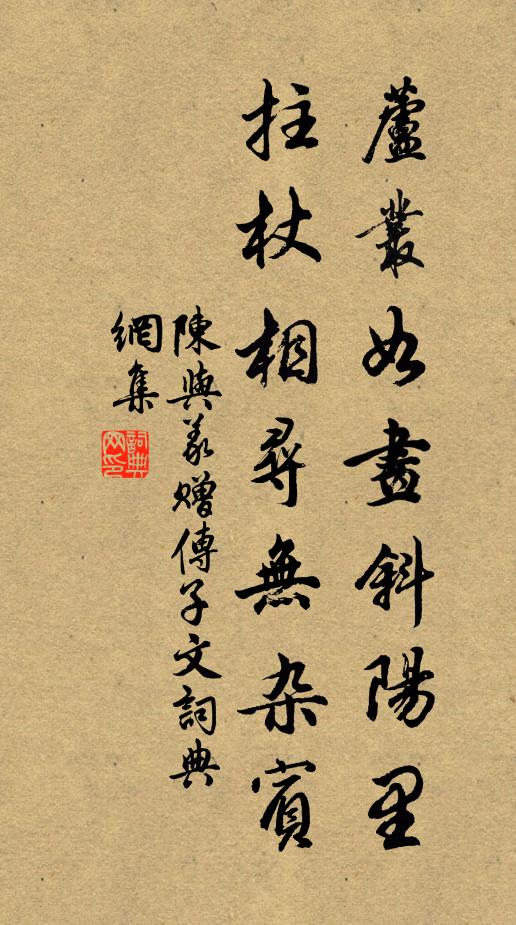 蘆叢如畫斜陽里
拄杖相尋無杂賓
陳與義贈傅子文詞典
網集
詞典
网印